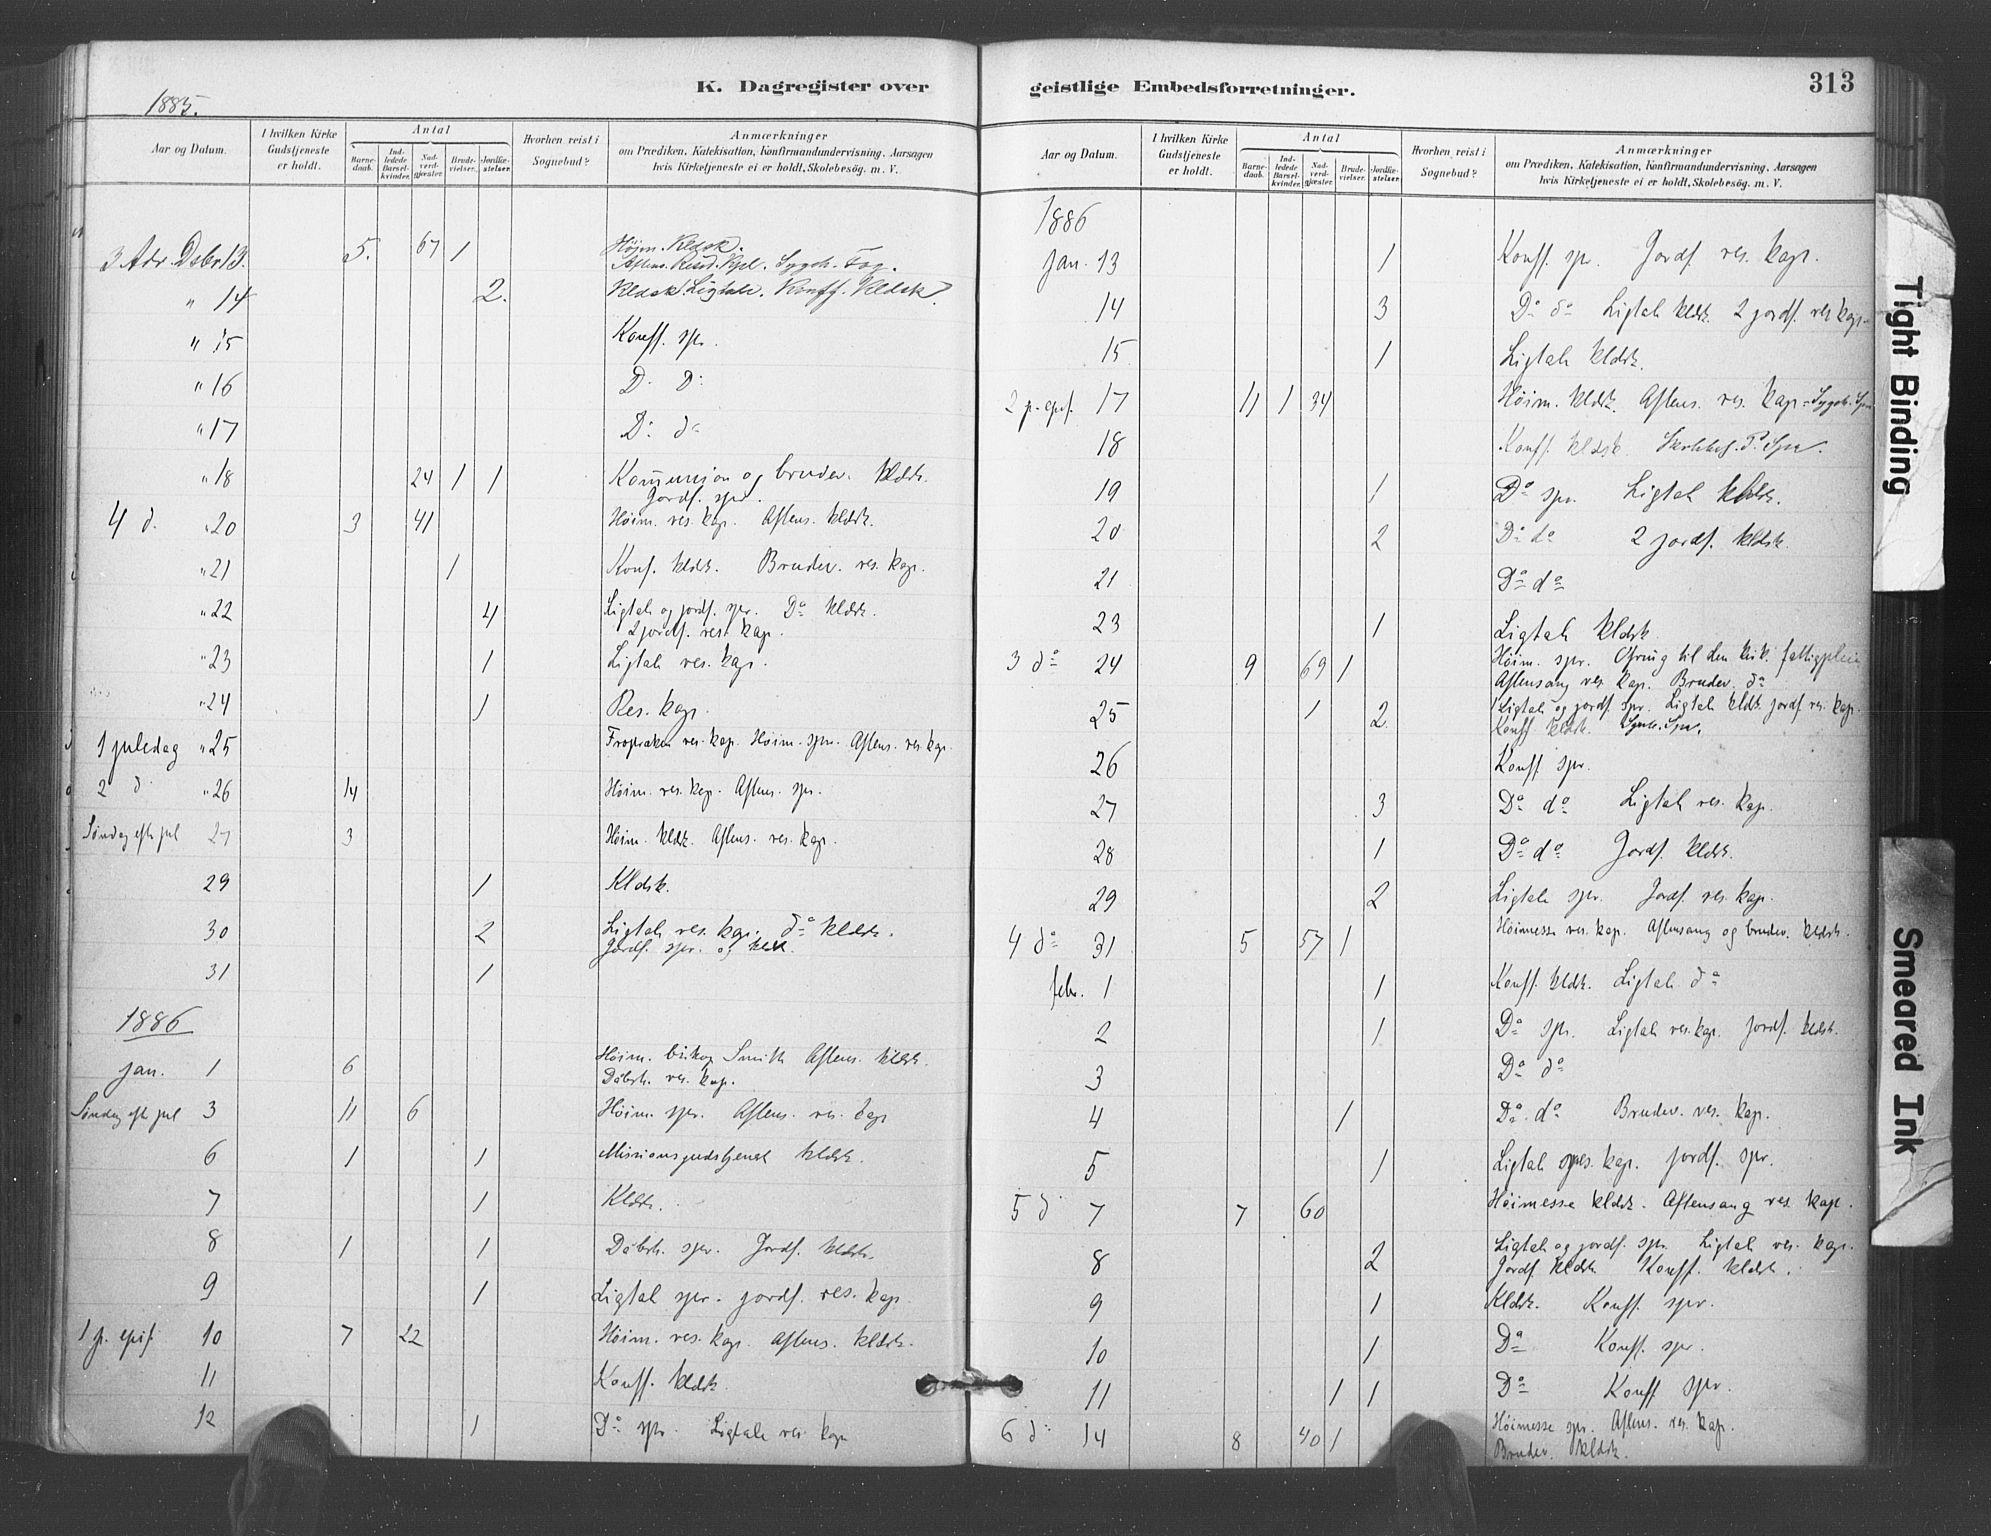 K. Dagregister over
1885.
Aar og Datum.
I hvilken Kirke Gudstjeneste er holdt.
Antal
Barne-daab.
Ind-ledede Barsel-kvinder.
Nad-verd-gjæster.
Brude-vielser.
Jordfæ-stelser.
Hvorhen reist i Sognebud?
Anmærkninger
om Prædiken, Katekisation, Konfirmandundervisning, Aarsagen
hvis Kirketjeneste ei er holdt, Skolebesøg. m. V.
3 Adv. Dcbr 13. 5. 67 1 Højm. Kldsk.
Aftens. Resid. Kpl. Sygeh. Fog.
" 14 2. Kldsk. Ligtale. Konff. Kldsk.
" 15 Konff. spr.
" 16 D: D:
" 17 D: do
" 18 24 1 1 Kommunion og brudev. kldsk.
Jordf. spr.
4 d. " 20 3 41 Høim. res. kap. Aftens. kldsk.
" 21 1 Konf. kldsk. Brudev. res. kap.
" 22 4 Ligtale og jordf. spr. Do kldsk.
2 jordf. res. kap.
" 23 1 Ligtale res. kap.
" 24 1 Res. kap.
1 juledag " 25 Fropræken res. kap. Høim. spr. Aftens. res. kap.
2 d " 26 14 Høim. res. kap. Aftens. spr.
Søndag eft jul 27 3 Høim. kldsk. Aftens. res. kap.
29 1 Kldsk.
30 2 Ligtale res. kap. do kldsk.
Jordf. spr. og kldsk.
31 1
1886
jan. 1 6 Høim. biskop Smith Aftens. kldsk.
Dåbsh. res. kap.
Søndag eft jul 3 11 6 Høim. spr. Aftens. res. kap
6 1 1 Missionsgudstjenest kldsk.
7 1 Kldsk.
8 1 1 Dåbsh. spr. Jordf. kldsk.
9 1 Ligtal spr. jordf. res. kap.
1 p. epif 10 7 22 Høim. res. kap. Aftens. kldsk.
11 Konff. kldsk.
12 1 Do spr. Ligtale res. kap
geistlige Embedsforretninger.
313
Aar og Datum.
I hvilken Kirke Gudstjeneste er holdt.
Antal
Barne-daab.
Ind-ledede Barsel-kvinder.
Nad-verd-gjæster.
Brude-vielser.
Jordfæ-stelser.
Hvorhen reist i Sognebud?
Anmærkninger
om Prædiken, Katekisation, Konfirmandundervisning, Aarsagen
hvis Kirketjeneste ei er holdt, Skolebesøg. m. V.
1886
Jan. 13 1 Konff. spr. Jordf. res. kap.
14 3 Do do Ligtale kldsk. 2 jordf. res kap.
15 1 Ligtale kldsk.
2 p. epif. 17 11 1 34 Høim. kldsk. Aftens. res. kap. Sygeh. Spr.
18 Konff. kldsk.
19 1 Do spr. Ligtale kldsk.
20 2 Do do 2 jordf. kldsk.
21 Do do
23 1 Ligtale kldsk.
3 do 24 9 69 1 Høim. spr. Ofring til den kirk. fattigpleie
Aftensang res. kap. Brudev. do
25 1 2 Ligtale og jordf. spr. Ligtale kldsk. jordf. res. kap.
Konff kldsk.
26 Konff. spr.
27 3 Do do Ligtale res. kap.
28 1 Do do Jordf. kldsk.
29 2 Ligtale spr. Jordf. res. kap.
4 do 31 5 57 1 Høimesse res. kap. Aftensang og brudev. kldsk.
febr. 1 1 Konff. kldsk. Ligtale do
2 1 Do spr. Ligtale res. kap. Jordf. kldsk.
3 Do do
4 1 Do do Brudev. res. kap.
5 1 Ligtale res. kap. jordf. spr.
5 d 7 7 60 Høimesse kldsk. Aftensang res. kap.
8 2 Ligtale og jordf. spr. Ligtale res. kap.
Jordf. kldsk Konff. kldsk.
9 1 Kldsk. Konff. spr.
10 1 Do Konff. spr.
11 1 1 Do Konff. spr.
6 d 14 8 40 1 Høimesse spr. Aftens. res. kap.
Brudev. kldsk.
Tight Binding
Smeared Ink